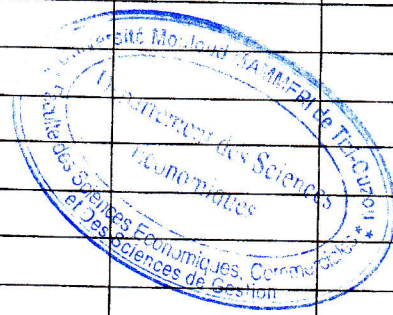 Université Mouloud MAMMERI de Tizi-Ouzou **
Faculté des Sciences Economiques, Commerciales
et Des Sciences de Gestion
Département des Sciences
Economiques